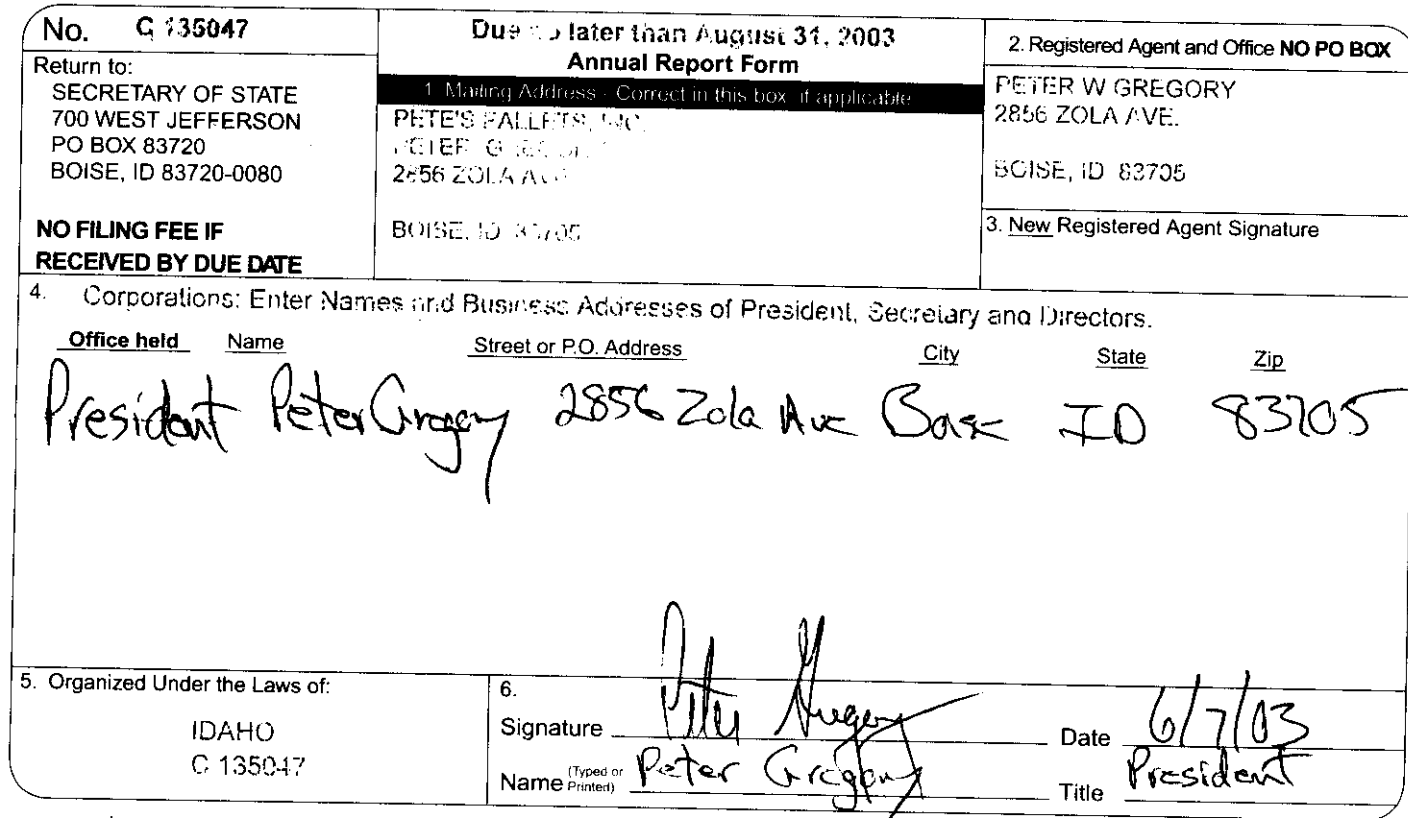 No. C 135047
Return to:
SECRETARY OF STATE
700 WEST JEFFERSON
PO BOX 83720
BOISE, ID 83720-0080
NO FILING FEE IF
RECEIVED BY DUE DATE
Due no later than August 31, 2003
Annual Report Form
1. Mailing Address - Correct in this box, if applicable
PETE'S PALLETS, INC.
PETER
2856 ZOLA AVE
BOISE, ID 83705
2. Registered Agent and Office NO PO BOX
PETER W GREGORY
2856 ZOLA AVE.
BOISE, ID 83705
3. New Registered Agent Signature
4. Corporations: Enter Names and Business Addresses of President, Secretary and Directors.
Office held Name Street or P.O. Address City State Zip
President Peter Gregory 2856 Zola Ave Boise ID 83705
5. Organized Under the Laws of:
IDAHO
C 135047
6.
Signature Peter Gregory Date 6/7/03
Name (Typed or Printed) Peter Gregory Title President